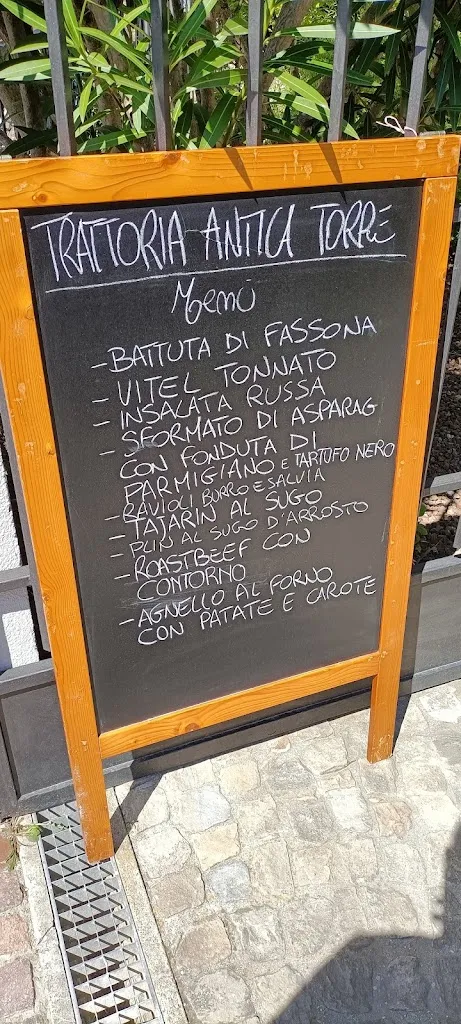 TRATTORIA ANTICA TORRE
Menù
- BATTUTA DI FASSONA
- VITEL TONNATO
- INSALATA RUSSA
- SFORMATO DI ASPARAG
CON FONDUTA DI
PARMIGIANO E TARTUFO NERO
RAVIOLI BURRO E SALVIA
- TAJARIN AL SUGO
- PLIN AL SUGO D'ARROSTO
- ROASTBEEF CON
CONTORNO
- AGNELLO AL FORNO
CON PATATE E CAROTE